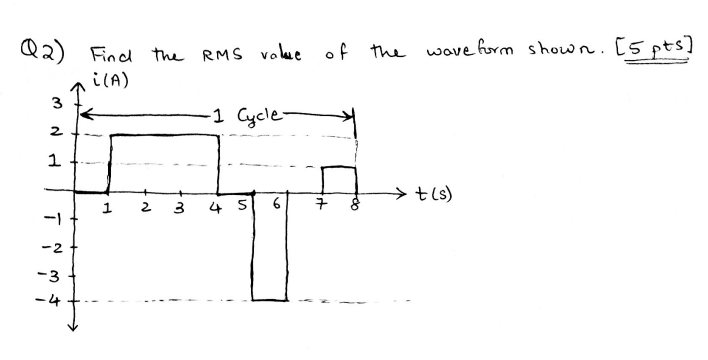 Q2) Find the RMS value of the waveform shown. [5 pts]
i(A)
3
1 Cycle
2
1
t(s)
1 2 3 4 5 6 7 8
-1
-2
-3
-4